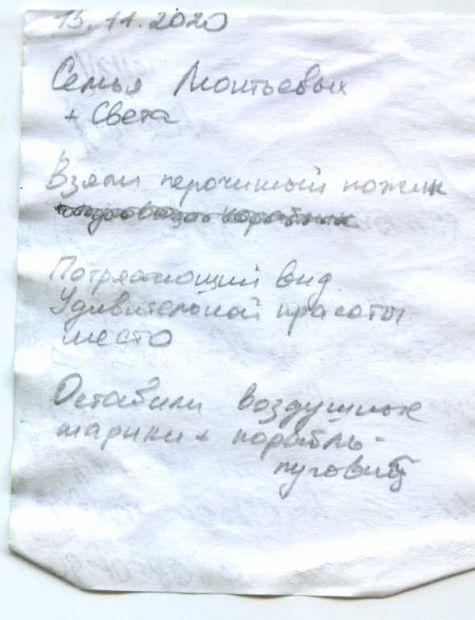 15.11.2020
Семья Леонтьевых
+ Света
Взяли перочинный ножик
Потрясающий вид.
Удивительной красоты
место
Оставили воздушные
шарики + корабль-
пуговиц